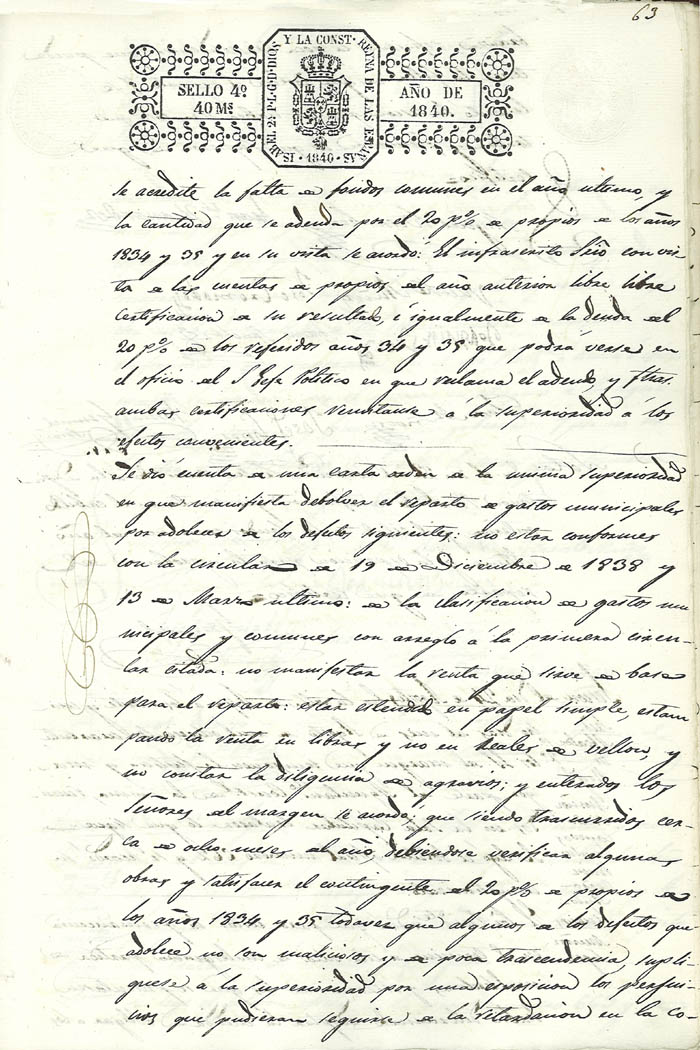 63
SELLO 4º
40 Ms
ISABEL 2ª P·L·G·D·DIOS Y LA CONST· REYNA DE LAS ESPAÑAS
· 1840 ·
AÑO DE
1840.
se acredite la falta de fondos comunes en el año ultimo, y
la cantidad que se adeuda por el 20 p% de propios de los años
1834 y 35 y en su vista se acordó: El infrascrito Srio con vis-
ta de las cuentas de propios del año anterior libre libre
certificacion de su resultado, é igualmente de la deuda del
20 p% de los referidos años 34 y 35 que podrá verse en
el oficio del S Gefe Politico en que reclama el adeudo, y
ambas certificaciones remitanse á la superioridad á los
efectos convenientes.
Se dió cuenta de una carta orden de la misma superioridad
en que manifiesta debolver el reparto de gastos municipales
por adolecer de los defectos siguientes: no estar conformes
con la circular de 19 de Diciembre de 1838 y
13 de Marzo ultimo: de la clasificacion de gastos mu
nicipales y comunes con arreglo á la primera circu-
lar citada: no manifestar la renta que sirve de base
para el reparto: estar estendido en papel simple, estam
pando la renta en libras y no en reales de vellon, y
no constar la diligencia de agravios; y enterados los
Señores del margen se acordo; que siendo trascurridos cer-
ca de ocho meses del año, debiendose verificar algunas
obras y satisfacer el contingente del 20 p% de propios de
los años 1834 y 35 todavez que algunos de los defectos que
adolece no son maliciosos y de poca trascendencia, supli-
quese á la superioridad por una esposicion los perjui-
cios que pudieran seguirse de la retardacion en la co-